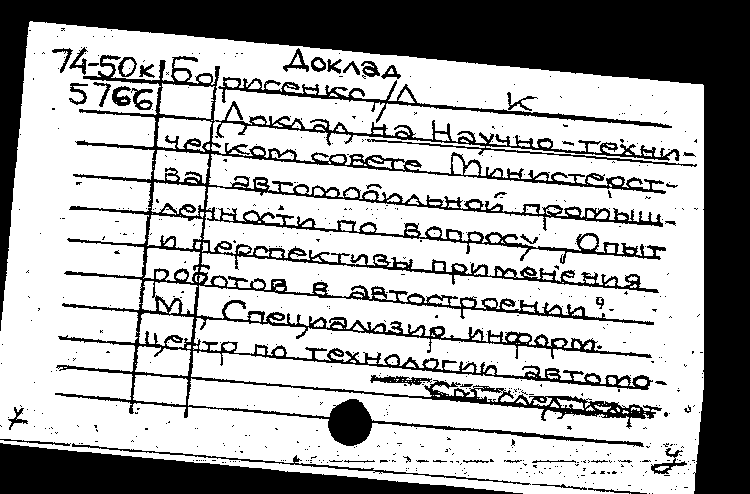 Доклад
74-50к Борисенко, Л К
5766
Доклад на Научно-техни-
ческом совете Министерст-
ва автомобильной промыш-
ленности по вопросу „Опыт
и перспективы применения
роботов в автостроении".
М., Специализир. информ.
центр по технологии автомо-
см. след. карт.